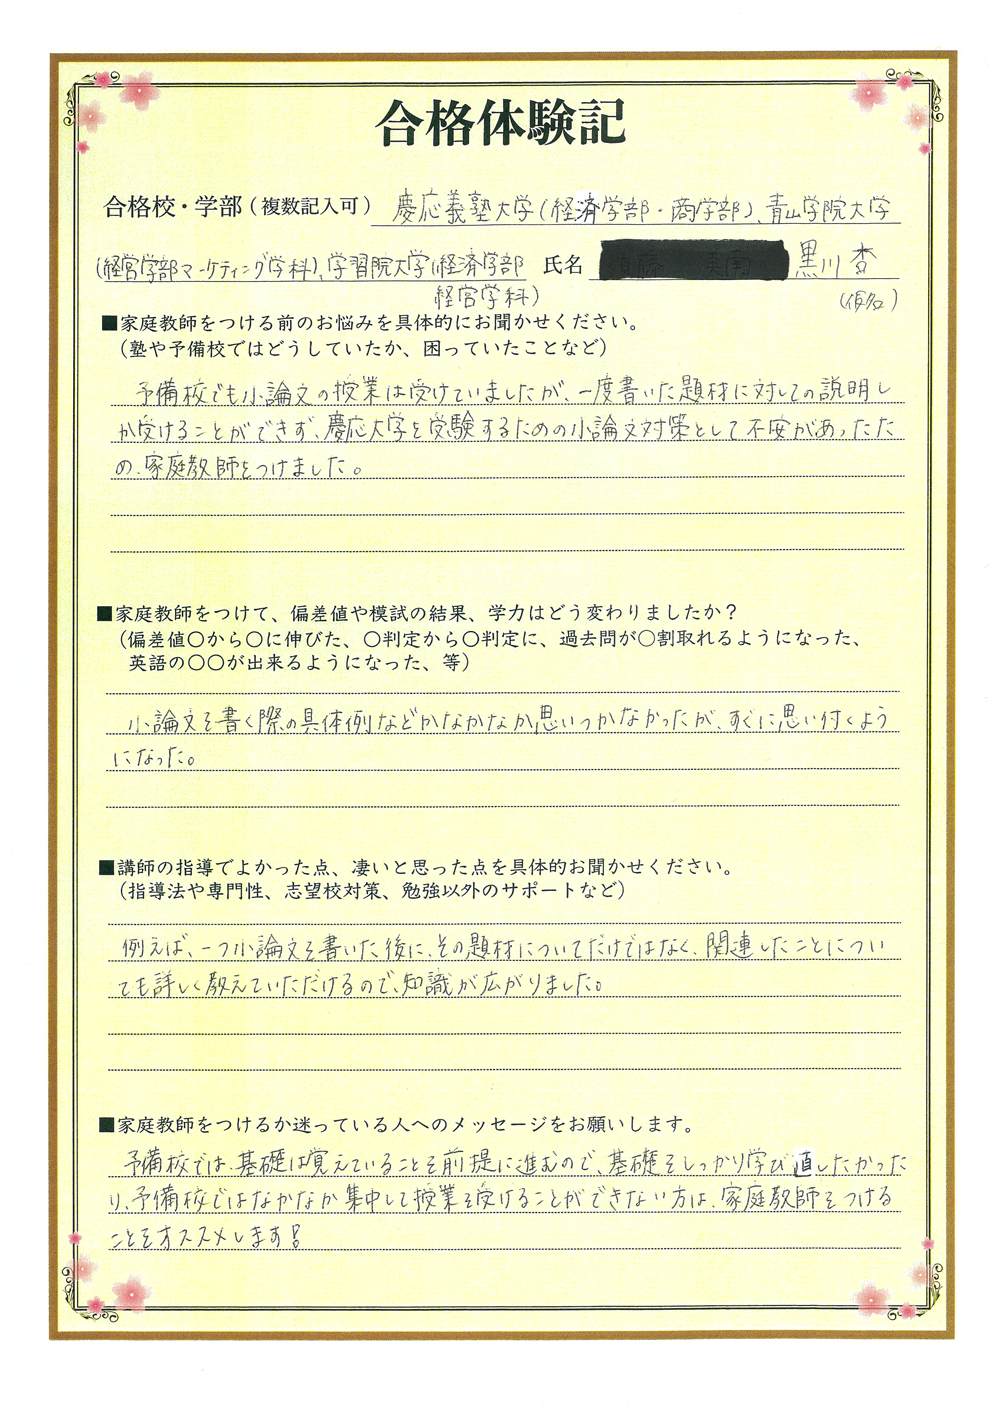 合格体験記
合格校・学部（複数記入可） 慶応義塾大学(経済学部・商学部)、青山学院大学
(経営学部マーケティング学科)、学習院大学(経済学部 氏名 黒川 杏
経営学科) (仮名)
■家庭教師をつける前のお悩みを具体的にお聞かせください。
（塾や予備校ではどうしていたか、困っていたことなど）
予備校でも小論文の授業は受けていましたが、一度書いた題材に対しての説明し
か受けることができず、慶応大学を受験するための小論文対策として不安があったた
め、家庭教師をつけました。
■家庭教師をつけて、偏差値や模試の結果、学力はどう変わりましたか？
（偏差値〇から〇に伸びた、〇判定から〇判定に、過去問が〇割取れるようになった、
英語の〇〇が出来るようになった、等）
小論文を書く際の具体例などがなかなか思いつかなかったが、すぐに思い付くよう
になった。
■講師の指導でよかった点、凄いと思った点を具体的お聞かせください。
（指導法や専門性、志望校対策、勉強以外のサポートなど）
例えば、一つ小論文を書いた後に、その題材についてだけではなく、関連したことについ
ても詳しく教えていただけるので、知識が広がりました。
■家庭教師をつけるか迷っている人へのメッセージをお願いします。
予備校では、基礎は覚えていることを前提に進むので、基礎をしっかり学び直したかった
り、予備校ではなかなか集中して授業を受けることができない方は、家庭教師をつける
ことをオススメします!